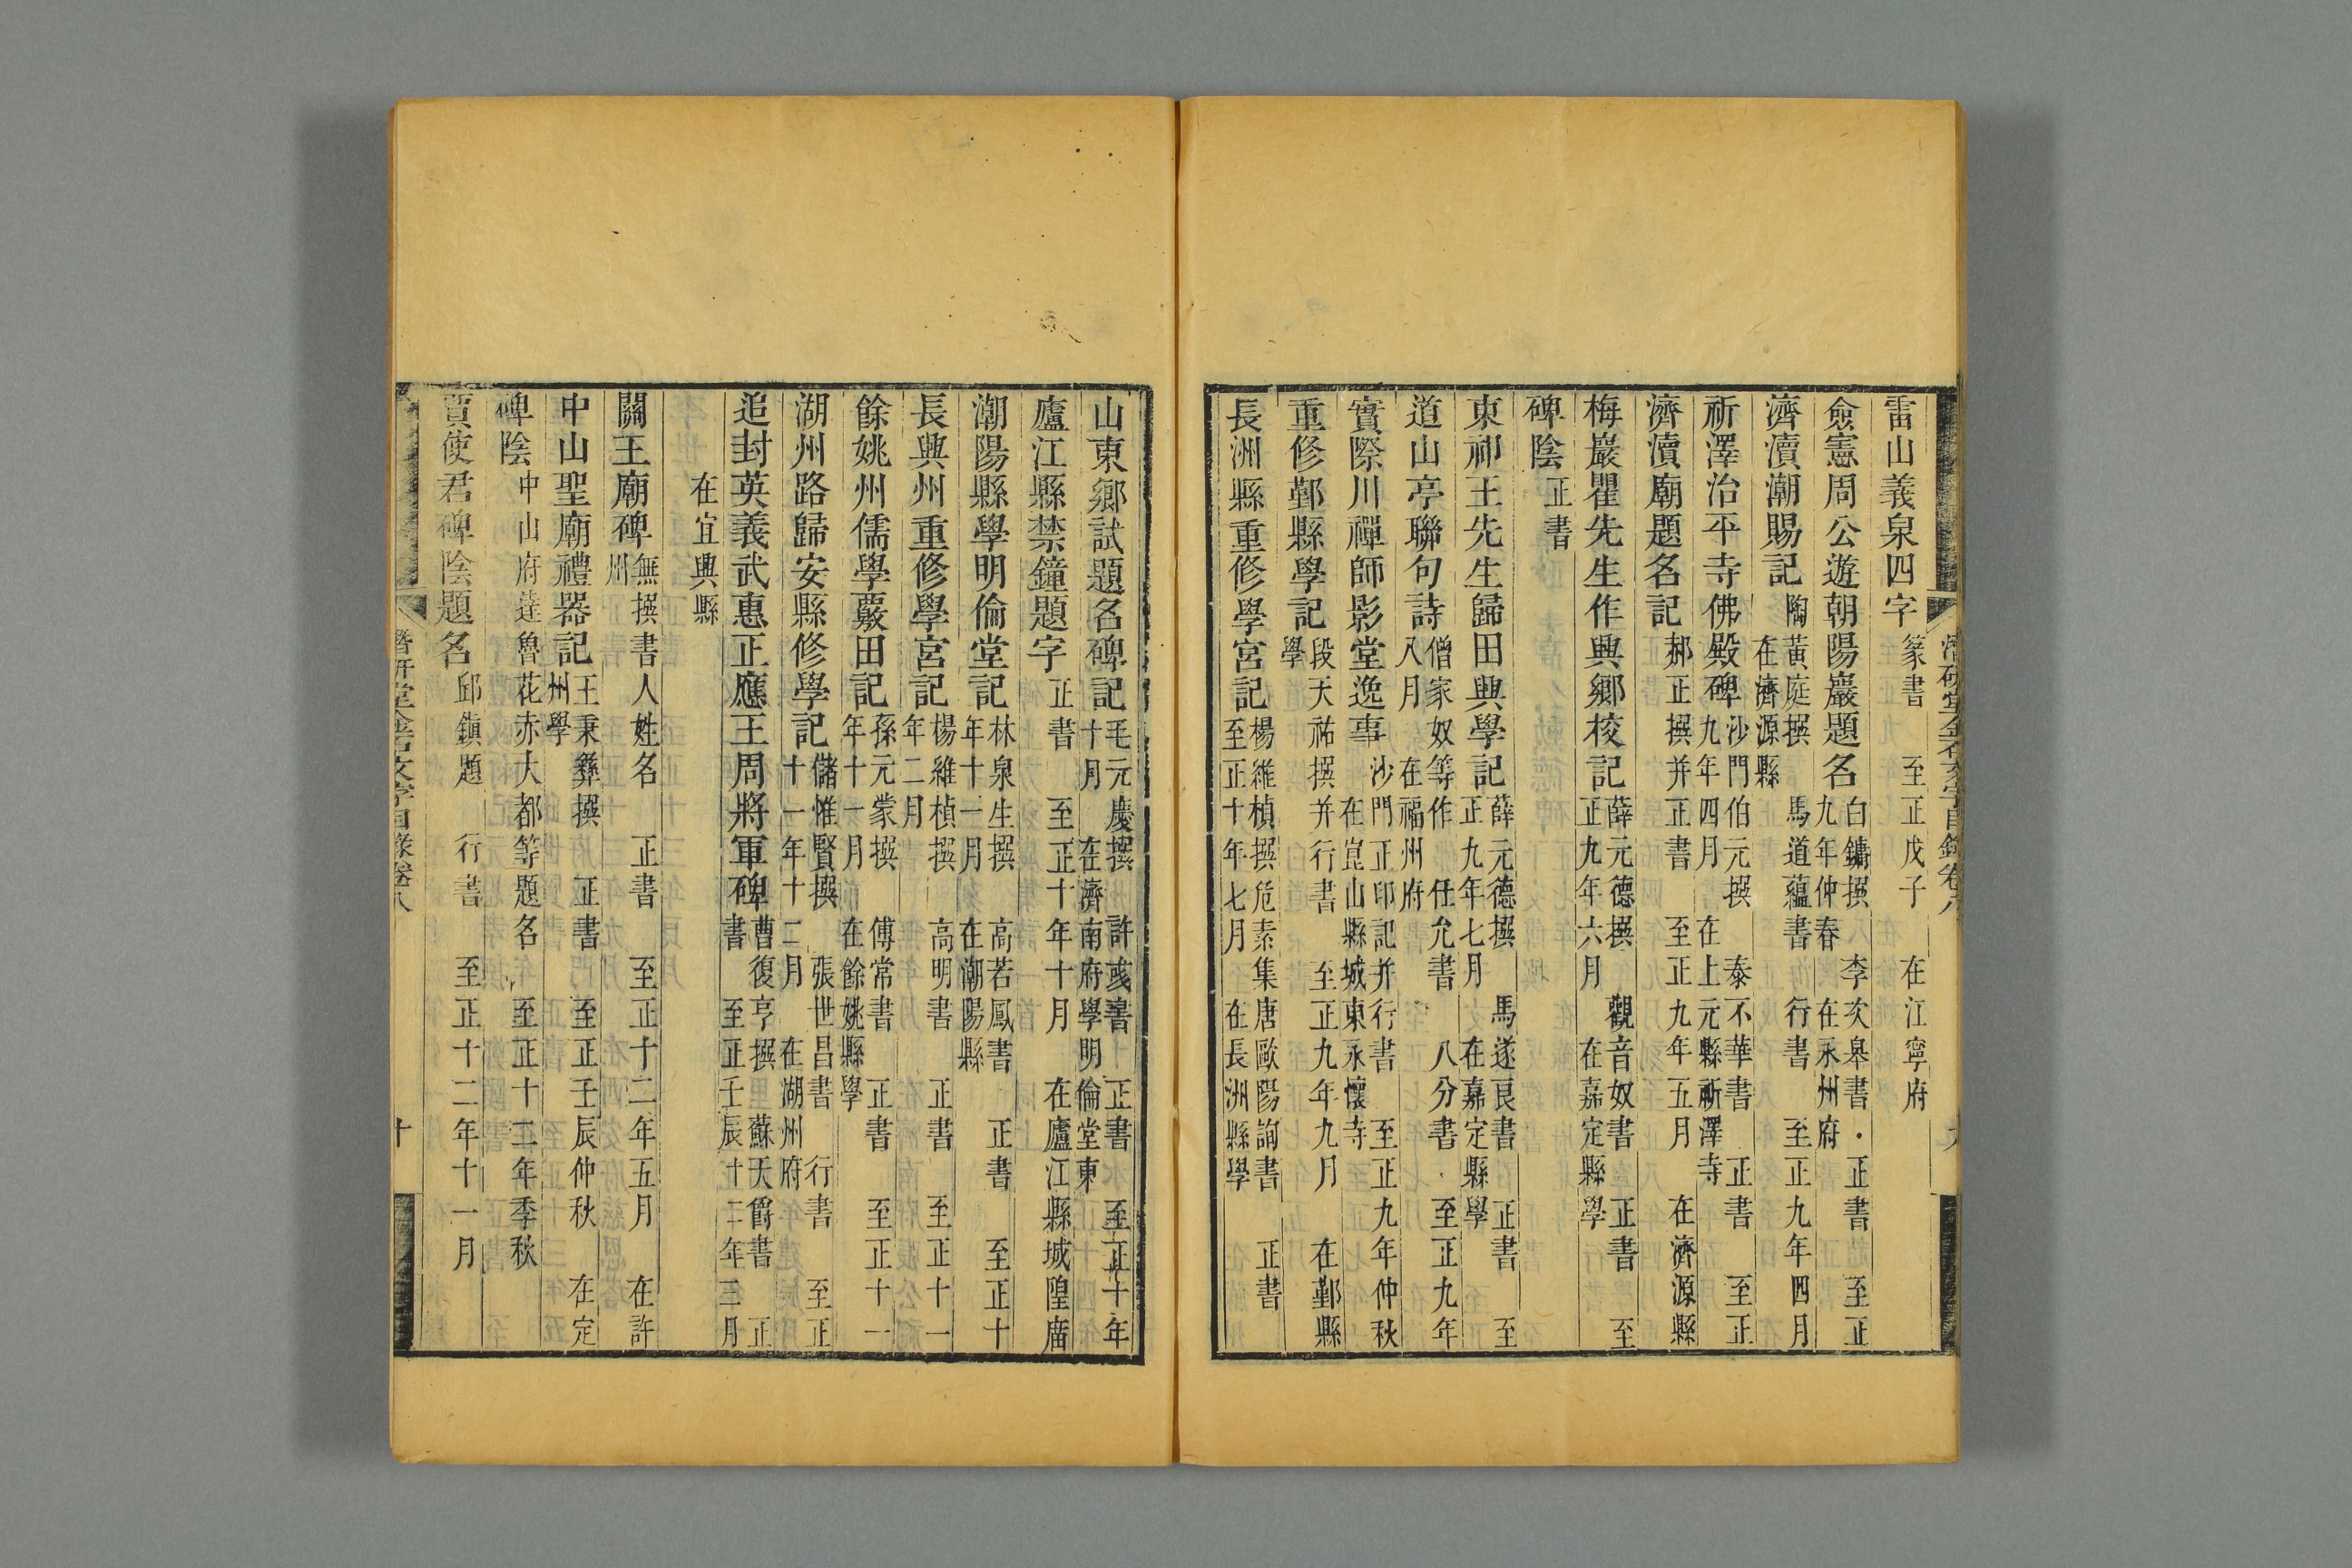 雷山義泉四字 篆書 至正戊子 在江寧府
僉憲周公遊朝陽巖題名 白鏞撰 李次皋書 正書 至正
九年仲春 在永州府
濟瀆潮賜記 陶黃庭撰 馬道蘊書 行書 至正九年四月
在濟源縣
祈澤治平寺佛殿碑 沙門伯元撰 泰不華書 正書 至正
九年四月 在上元縣祈澤寺
濟瀆廟題名記 郝正撰并正書 至正九年五月 在濟源縣
梅巖瞿先生作興鄉校記 薛元德撰 觀音奴書 正書 至
正九年六月 在嘉定縣學
碑陰 正書
東祁王先生歸田興學記 薛元德撰 馬遂良書 正書 至
正九年七月 在嘉定縣學
道山亭聯句詩 僧家奴等作 任允書 八分書 至正九年
八月 在福州府
實際川禪師影堂逸事 沙門正印記并行書 至正九年仲秋
在崑山縣城東永懷寺
重修鄞縣學記 段天祐撰并行書 至正九年九月 在鄞縣
學
長洲縣重修學宮記 楊維楨撰 危素集唐歐陽詢書 正書
至正十年七月 在長洲縣學
潛研堂金石文字目錄卷八 九
山東鄉試題名碑記 毛元慶撰 許彧書 正書 至正十年
十月 在濟南府學明倫堂東
廬江縣禁鐘題字 正書 至正十年十月 在廬江縣城隍廟
潮陽縣學明倫堂記 林泉生撰 高若鳳書 正書 至正十
年十一月 在潮陽縣
長興州重修學宮記 楊維楨撰 高明書 正書 至正十一
年二月
餘姚州儒學覈田記 孫元蒙撰 傅常書 正書 至正十一
年十一月 在餘姚縣學
湖州路歸安縣修學記 儲惟賢撰 張世昌書 行書 至正
十一年十二月 在湖州府
追封英義武惠正應王周將軍碑 曹復亨撰 蘇天爵書 正
書 至正壬辰十二年三月
在宜興縣
關王廟碑 無撰書人姓名 正書 至正十二年五月 在許
州
中山聖廟禮器記 王秉彝撰 正書 至正壬辰仲秋 在定
州學
碑陰 中山府達魯花赤大都等題名 至正十二年季秋
賈使君碑陰題名 邱鎮題 行書 至正十二年十一月
潛研堂金石文字目錄卷八 十